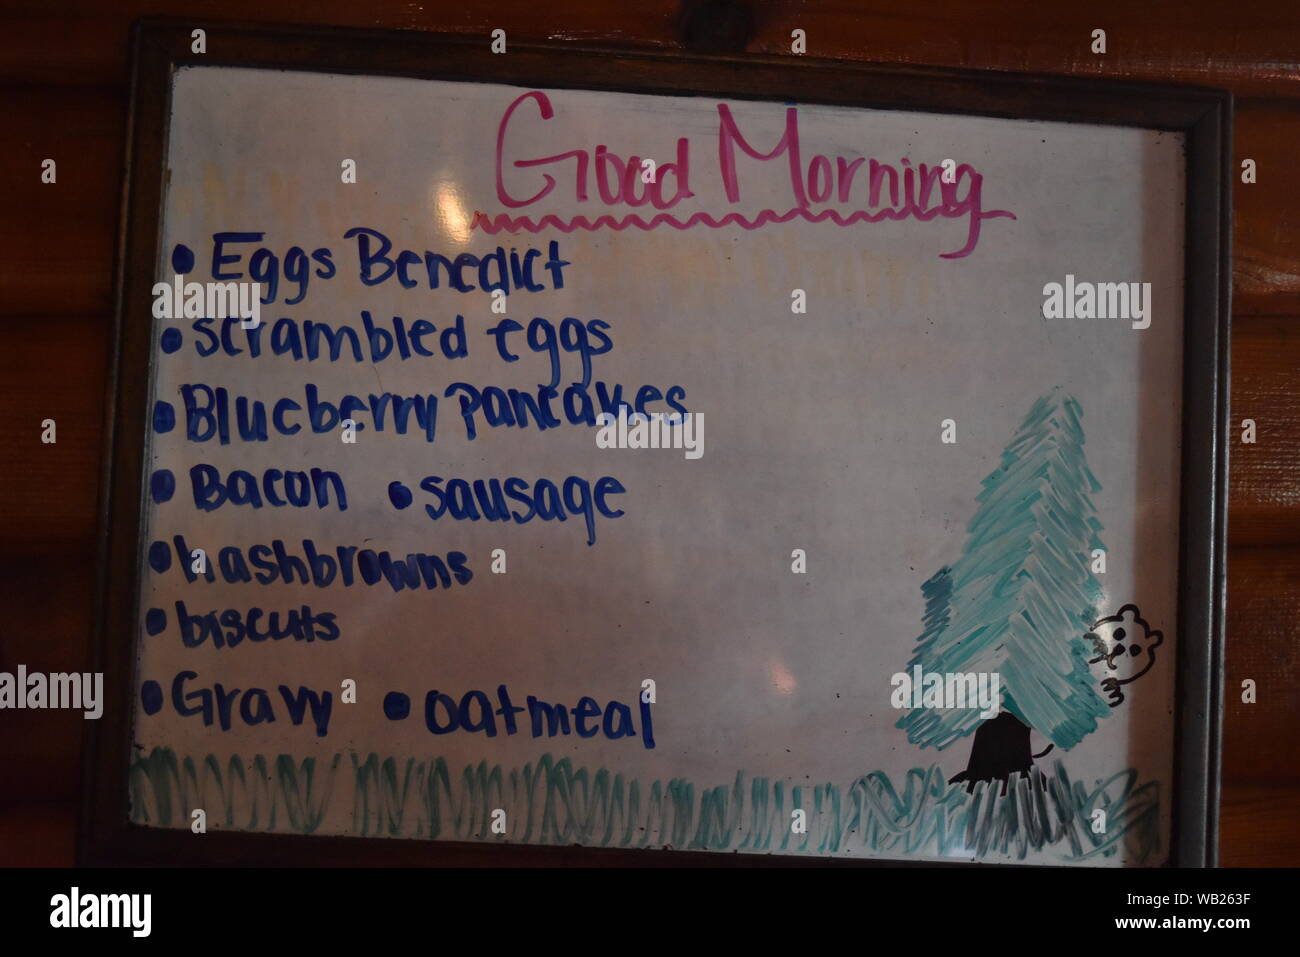 Good Morning
• Eggs Benedict
• scrambled eggs
• Blueberry pancakes
• Bacon • sausage
• hashbrowns
• biscuts
• Gravy • oatmeal
alamy
Image ID: WB263F
www.alamy.com